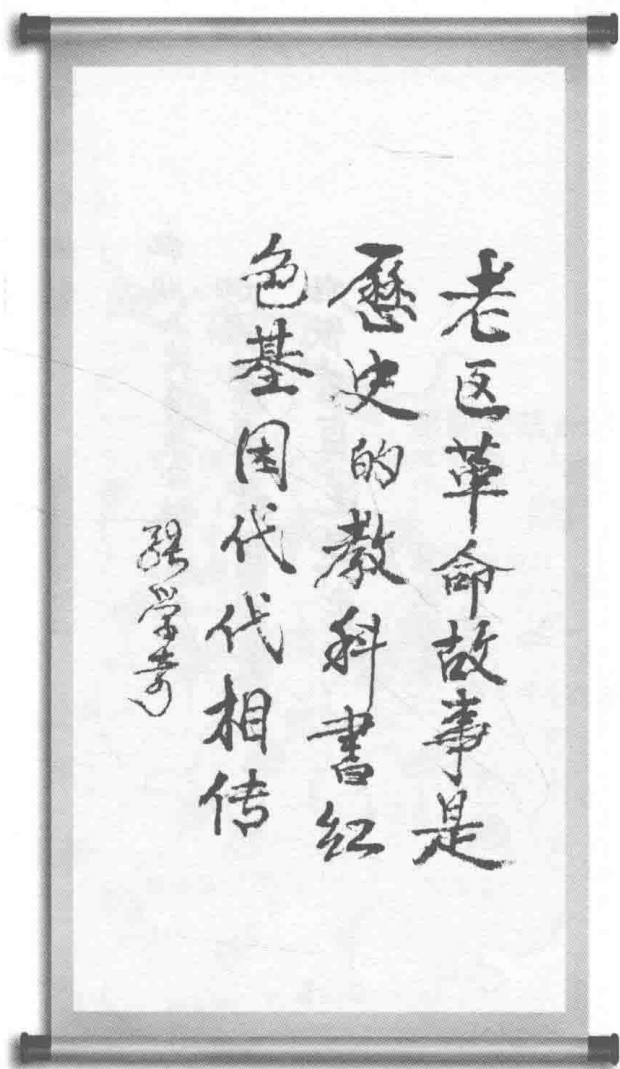 老区革命故事是
歷史的教科書红
色基因代代相传